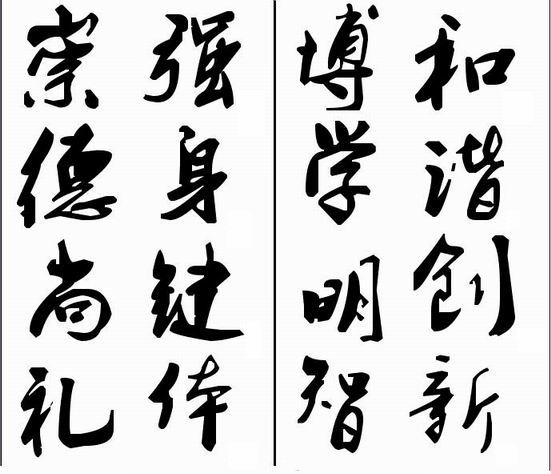 和谐创新
博学明智
强身键体
崇德尚礼